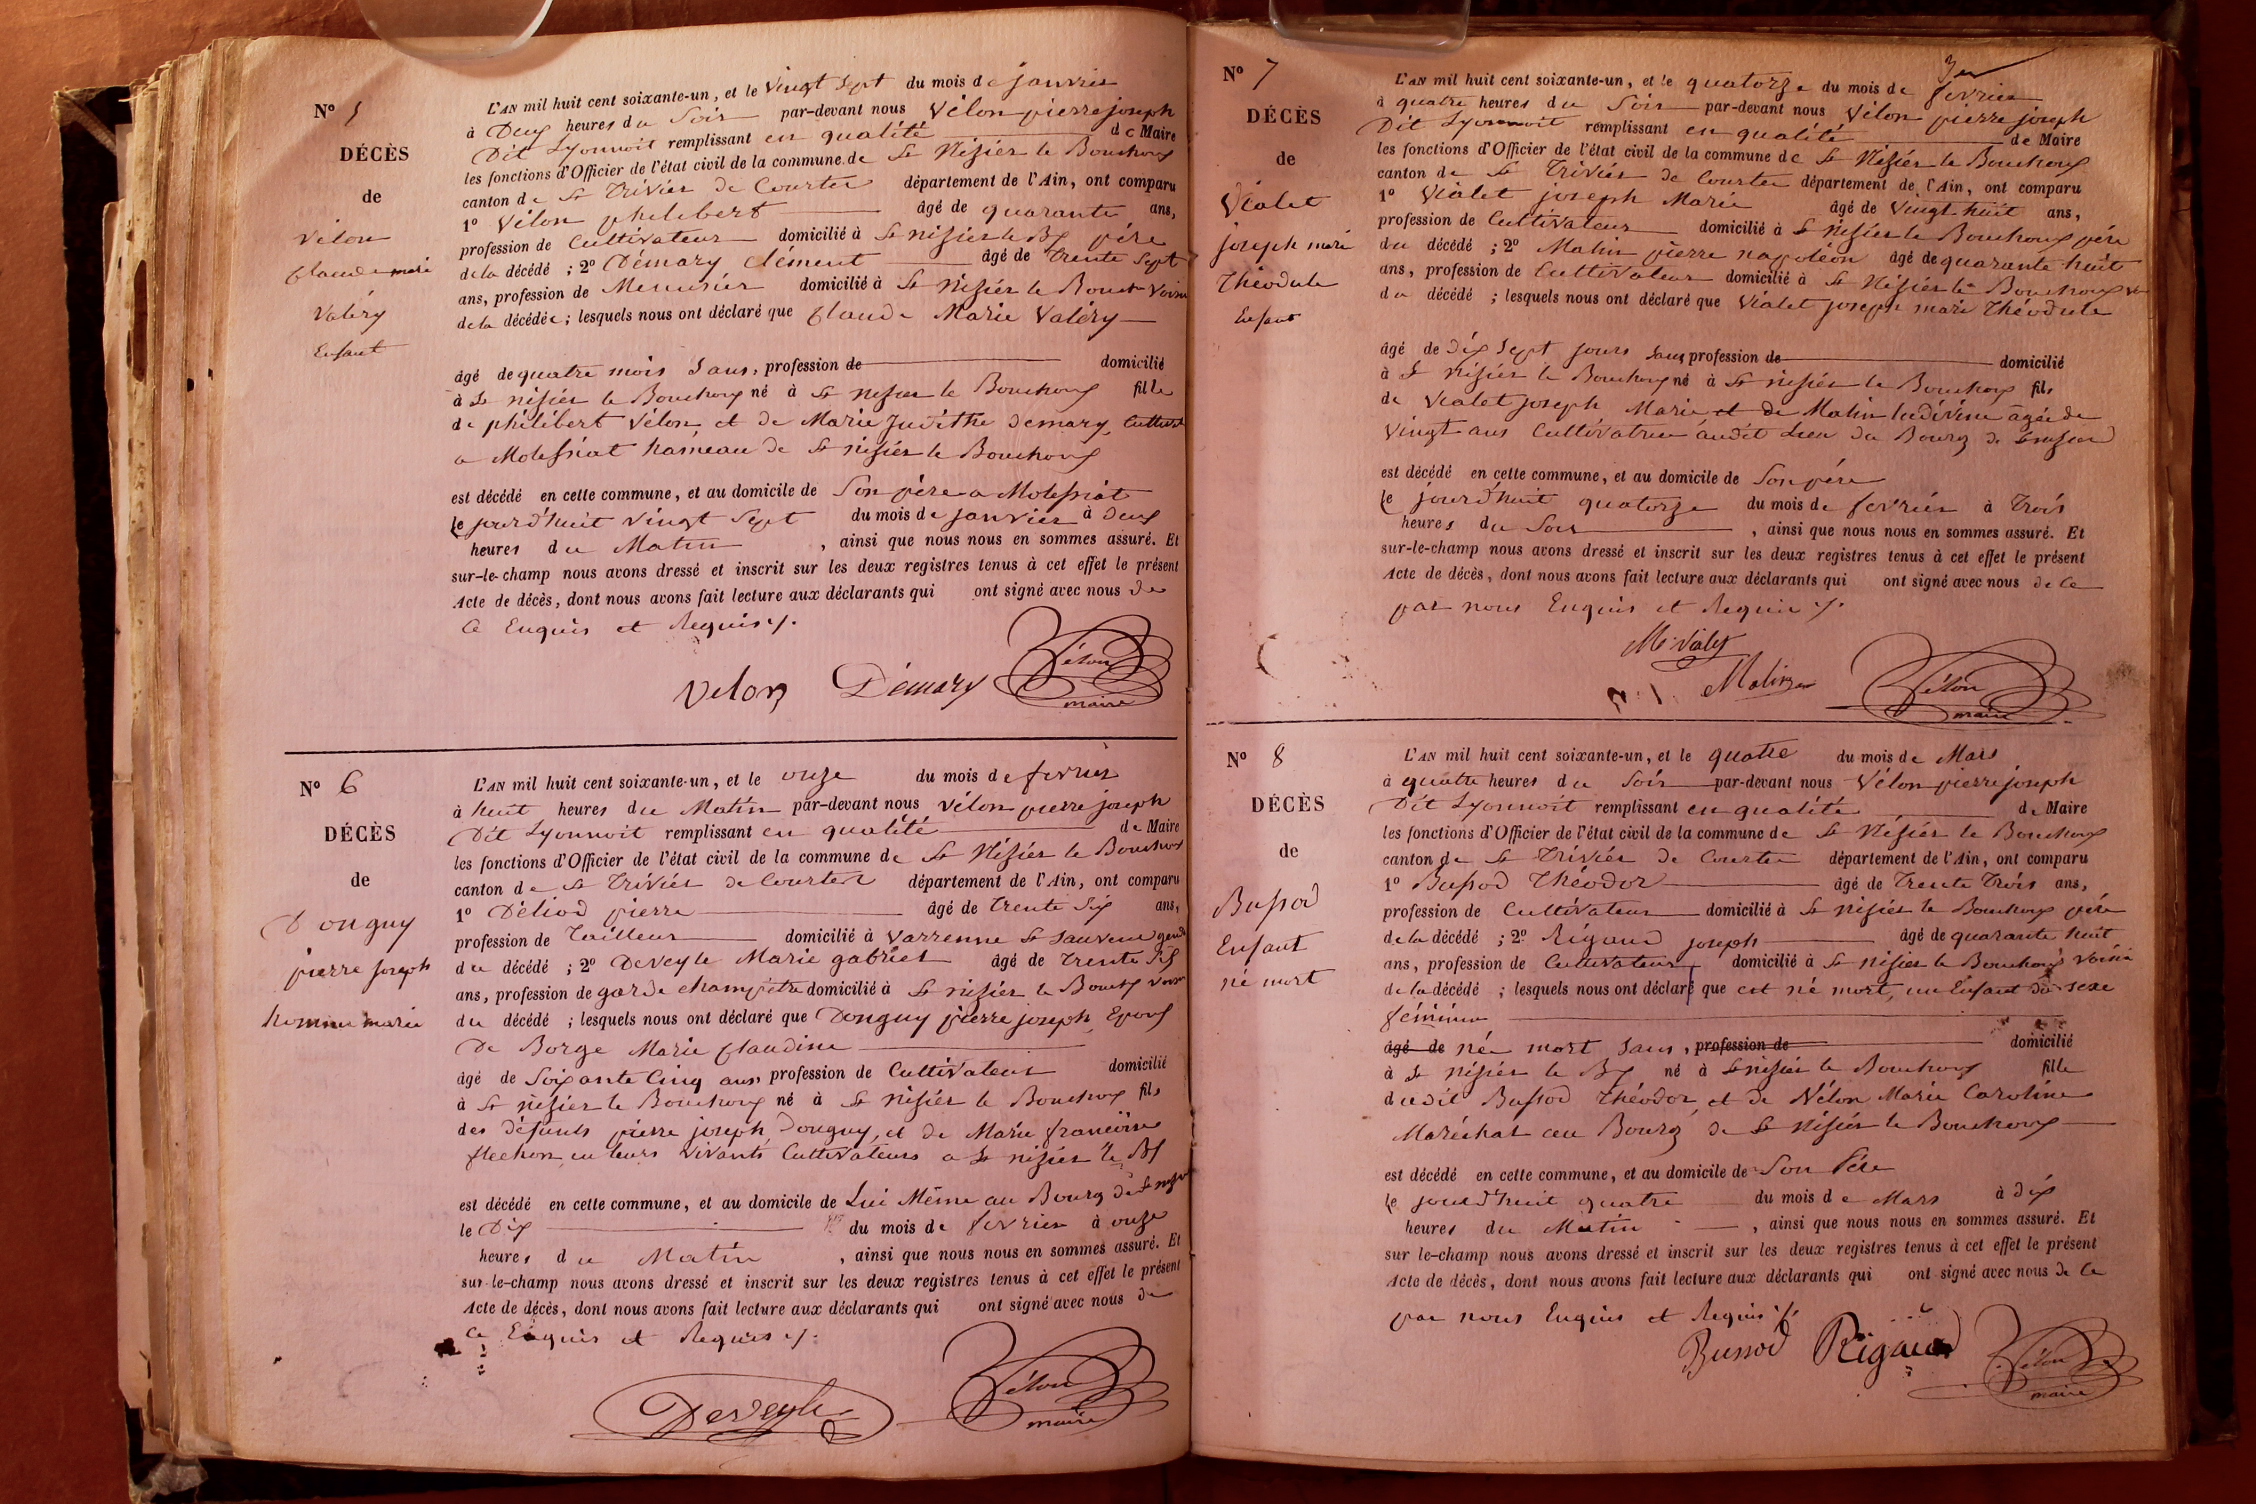 Nº 5
DÉCÈS
de
Vélon
Claude marie
Valéry
Enfant
L'AN mil huit cent soixante-un, et le Vingt Sept du mois de janvier
à Deux heures du Soir par-devant nous Vélon pierre joseph
Dit Lyonnoit remplissant en qualité de Maire
les fonctions d'Officier de l'état civil de la commune de St Nizier le Bouchoux
canton de St Trivier de Courtes département de l'Ain, ont comparu
1º Vélon philibert âgé de quarante ans,
profession de Cultivateur domicilié à St nizier le Bx père
de la décédé ; 2º Démary Clément âgé de Trente Sept
ans, profession de Menuisier domicilié à St Nizier le Boux Voisin
de la décédée ; lesquels nous ont déclaré que Claude Marie Valéry
âgé de quatre mois Sans, profession de domicilié
à St nizier le Bouchoux né à St nizier le Bouchoux fille
de philibert Vélon et de Marie Judithe Demary, Cultivat
a Molefriat hameau de St nizier le Bouchoux
est décédé en cette commune, et au domicile de Son père a Molefriat
le jourd'huit vingt Sept du mois de janvier à deux
heures du Matin , ainsi que nous nous en sommes assuré. Et
sur-le-champ nous avons dressé et inscrit sur les deux registres tenus à cet effet le présent
Acte de décès, dont nous avons fait lecture aux déclarants qui ont signé avec nous de
Ce Enquis et Requis ./.
Velon Démary Vélon
maire
Nº 6
DÉCÈS
de
Donguy
pierre Joseph
homme marié
L'AN mil huit cent soixante-un, et le onze du mois de fevrier
à huit heures du Matin par-devant nous Vélon pierre joseph
Dit Lyonnoit remplissant en qualité de Maire
les fonctions d'Officier de l'état civil de la commune de St Nizier le Bouchoux
canton de St Trivier de Courtes département de l'Ain, ont comparu
1º Déliod pierre âgé de Trente Six ans,
profession de Tailleur domicilié à Varrenne St Sauveur gendre
du décédé ; 2º Deveyle Marie gabriel âgé de Trente Six
ans, profession de garde champêtre domicilié à St nizier le Bouchx Voisin
du décédé ; lesquels nous ont déclaré que Donguy pierre joseph, Epoux
De Borge Marie Claudine
âgé de Soixante Cinq ans, profession de Cultivateur domicilié
à St nizier le Bouchoux né à St Nizier le Bouchoux fils
des défunts pierre joseph Donguy, et de Marie françoise
flechon, en leurs Vivants Cultivateurs a St nizier le Bx
est décédé en cette commune, et au domicile de Lui Même au Bourg de St nizier
le Dix du mois de fevrier à onze
heures du Matin , ainsi que nous nous en sommes assuré. Et
sur-le-champ nous avons dressé et inscrit sur les deux registres tenus à cet effet le présent
Acte de décès, dont nous avons fait lecture aux déclarants qui ont signé avec nous de
Ce Enquis et Requis ./.
Deveyle Vélon
maire
Nº 7
DÉCÈS
de
Vialet
joseph marie
Théodule
Enfant
L'AN mil huit cent soixante-un, et le quatorze du mois de fevrier
à quatre heures du Soir par-devant nous Vélon pierre joseph
Dit Lyonnoit remplissant en qualité de Maire
les fonctions d'Officier de l'état civil de la commune de St Nizier le Bouchoux
canton de St Trivier de Courtes département de l'Ain, ont comparu
1º Vialet joseph Marie âgé de Vingt huit ans,
profession de Cultivateur domicilié à St nizier le Bouchoux père
du décédé ; 2º Matin pierre napoléon âgé de quarante huit
ans, profession de Cultivateur domicilié à St Nizier le Bouchoux
du décédé ; lesquels nous ont déclaré que Vialet joseph marie Théodule
âgé de dix Sept jours Sans profession de domicilié
à St Nizier le Bouchoux né à St nizier le Bouchoux fils
de Vialet joseph Marie et de Matin ludivine âgée de
Vingt ans Cultivatrice audit Lieu du Bourg de St nizier
est décédé en cette commune, et au domicile de Son père
le jourd'huit quatorze du mois de fevrier à Trois
heures du Soir , ainsi que nous nous en sommes assuré. Et
sur-le-champ nous avons dressé et inscrit sur les deux registres tenus à cet effet le présent
Acte de décès, dont nous avons fait lecture aux déclarants qui ont signé avec nous de Ce
par nous Enquis et Requis ./.
Matin Vélon
maire
Nº 8
DÉCÈS
de
Bussod
Enfant
né mort
L'AN mil huit cent soixante-un, et le quatre du mois de Mars
à quatre heures du Soir par-devant nous Vélon pierre joseph
Dit Lyonnoit remplissant en qualité de Maire
les fonctions d'Officier de l'état civil de la commune de St Nizier le Bouchoux
canton de St Trivier de Courtes département de l'Ain, ont comparu
1º Bussod Théodor âgé de Trente Trois ans,
profession de Cultivateur domicilié à St nizier le Bouchoux père
de la décédé ; 2º Rigaud joseph âgé de quarante huit
ans, profession de Cultivateur domicilié à St nizier le Bouchoux Voisin
de la décédé ; lesquels nous ont déclaré que est né mort, un Enfant du sexe
féminin
âgé de née mort Sans, profession de domicilié
à St nizier le Bx né à St nizier le Bouchoux fille
dudit Bussod Théodor et de Vélon Marie Caroline
Maréchal au Bourg de St Nizier le Bouchoux
est décédé en cette commune, et au domicile de Son Père
le jourd'huit quatre du mois de Mars à dix
heures du Matin , ainsi que nous nous en sommes assuré. Et
sur le-champ nous avons dressé et inscrit sur les deux registres tenus à cet effet le présent
Acte de décès, dont nous avons fait lecture aux déclarants qui ont signé avec nous de Ce
par nous Enquis et Requis ./.
Bussod Rigaud Vélon
maire